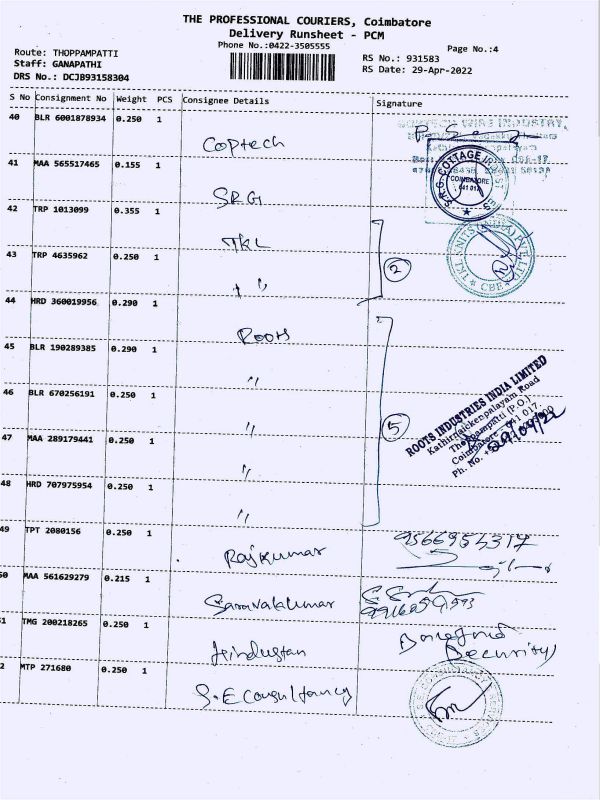 THE PROFESSIONAL COURIERS, Coimbatore
Delivery Runsheet - PCM
Phone No.:0422-3505555
Page No.:4
Route: THOPPAMPATTI
Staff: GANAPATHI
DRS No.: DCJB93158304
RS No.: 931583
RS Date: 29-Apr-2022
S No Consignment No Weight PCS Consignee Details Signature
40 BLR 6001878934 0.250 1
Coptech
41 MAA 565517465 0.155 1
S.R.G
S.R.G. COTTAGE
COIMBATORE
641 017
42 TRP 1013099 0.355 1
TKL
43 TRP 4635962 0.250 1
"
2
TKL KNITS (INDIA) PVT LTD
CBE
44 HRD 360019956 0.290 1
Roots
45 BLR 190289385 0.290 1
"
46 BLR 670256191 0.250 1
"
5
ROOTS INDUSTRIES INDIA LIMITED
Kathirnaickenpalayam Road
Thoppampatti (P.O.)
Coimbatore - 641 017.
Ph. No.
29/04/22
47 MAA 289179441 0.250 1
"
48 HRD 707975954 0.250 1
"
49 TPT 2080156 0.250 1
Rajkumar
9566954317
50 MAA 561629279 0.215 1
Saravanakumar
51 TMG 200218265 0.250 1
Hindustan
Security
52 MTP 271680 0.250 1
S.E Consultancy